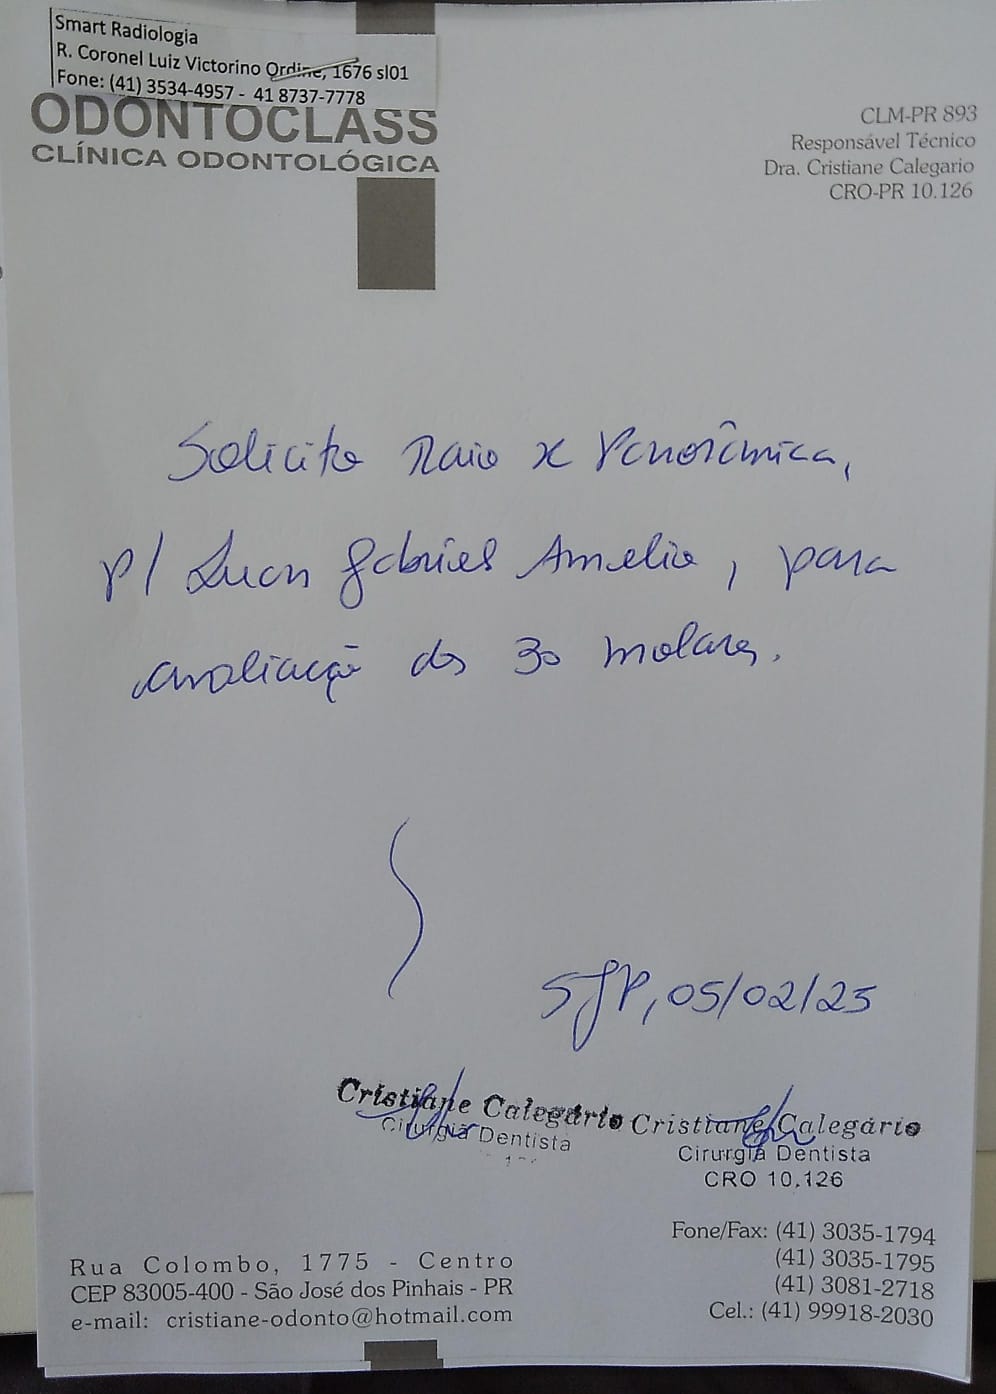 Smart Radiologia
R. Coronel Luiz Victorino Ordine, 1676 sl01
Fone: (41) 3534-4957 - 41 8737-7778
ODONTOCLASS
CLÍNICA ODONTOLÓGICA
CLM-PR 893
Responsável Técnico
Dra. Cristiane Calegario
CRO-PR 10.126
Solicito Raio x Panorâmica,
p/ Luan Gabriel Amelio, para
avaliação dos 3os molares.
SJP, 05/02/25
Cristiane Calegário
Cirurgiã Dentista
Cristiane Calegário
Cirurgiã Dentista
CRO 10.126
Rua Colombo, 1775 - Centro
CEP 83005-400 - São José dos Pinhais - PR
e-mail: cristiane-odonto@hotmail.com
Fone/Fax: (41) 3035-1794
(41) 3035-1795
(41) 3081-2718
Cel.: (41) 99918-2030